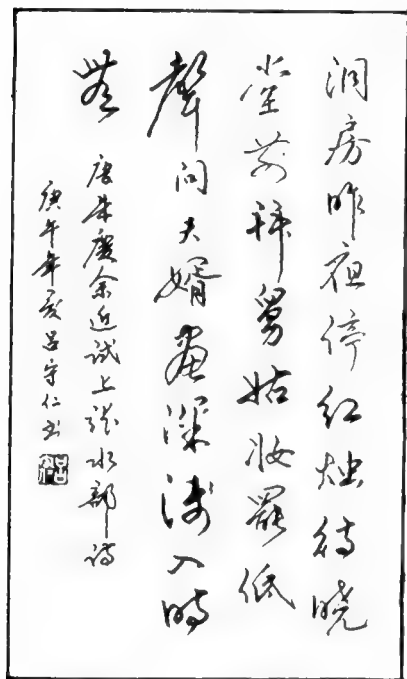 洞房昨夜停红烛待晓
堂前拜舅姑妆罢低
聲问夫婿畫深浅入时
無
唐朱慶余近试上张水部诗
庚午年夏吕守仁书